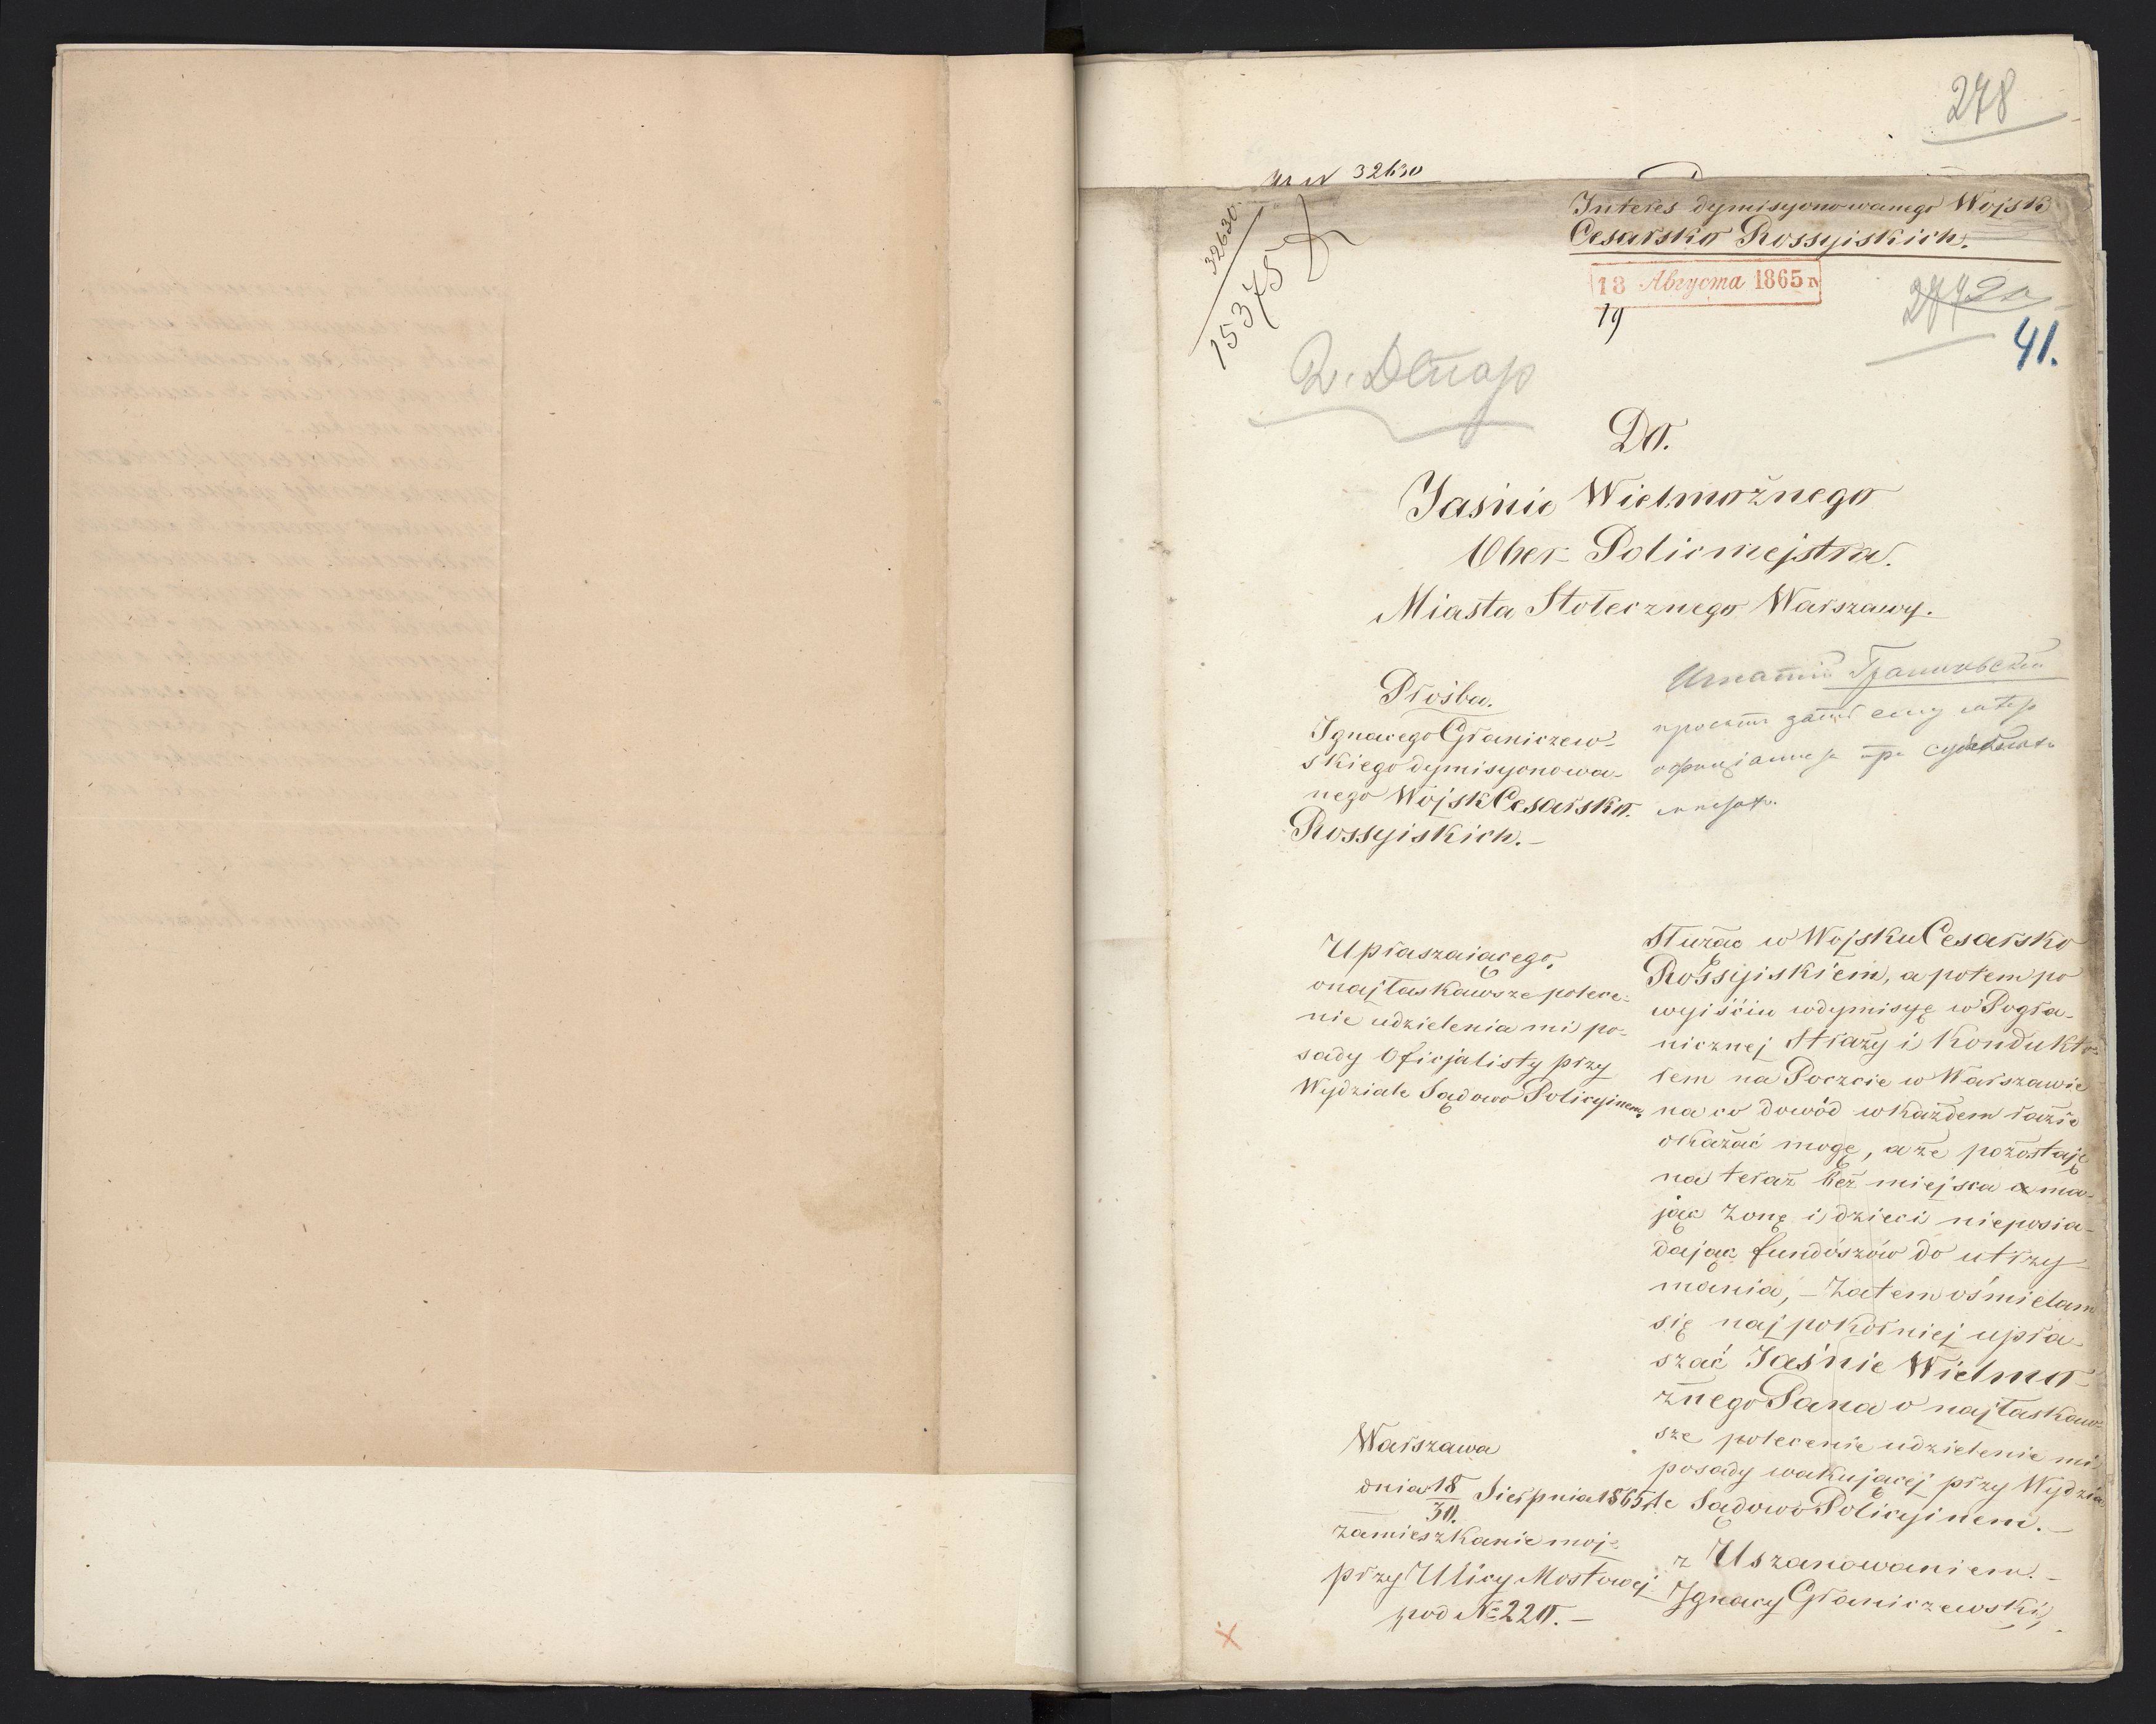 278
32630
Interes dymisyonowanego Wojsk
Cesarsko Rossyiskich.
32630
15375
18 Августа 1865
19
41.
2. Депар
Do.
Jaśnie Wielmożnego
Ober Policmejstra.
Miasta Stołecznego Warszawy.
Prośba.
Ignacego Graniczew-
skiego dymisyonowa-
nego Wojsk Cesarsko.
Rossyiskich.-
Игнатий
проситъ дать ему
Upraszaiącego,
o najłaskawsze polece-
nie udzielenia mi po-
sady Oficjalisty przy
Wydziale Sądowo Policyinem,
Służąc w Wojsku Cesarsko
Rossyiskiem, a potem po
wyiściu w dymisyę w Pogra-
nicznej Straży i Kondukto-
rem na Poczcie w Warszawie
na co dowód w każdem razie
okazać mogę, a że pozostaję
na teraz bez miejsca a ma-
jąc żonę i dzieci nieposia-
dając fundószów do utrzy-
mania, - Zatem ośmielam
się najpokorniej upra-
szać Jaśnie Wielmo-
żnego Pana o najłaskaw-
sze polecenie udzielenie mi
posady wakującej przy Wydzia
le Sądowo Policyinem.-
z Uszanowaniem.-
Ignacy Graniczewski
Warszawa
dnia 18/30. Sierpnia 1865 r.
zamieszkanie moje
przy Ulicy Mostowej
pod №220.-